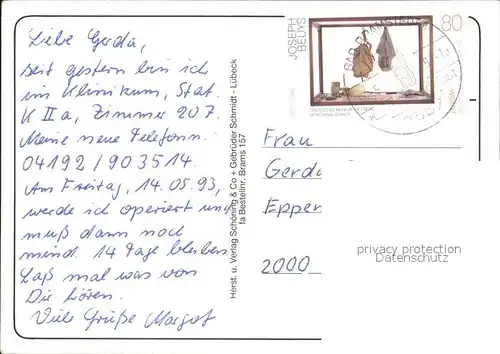 Liebe Gerda,
seit gestern bin ich
im Klinikum, Stat.
K II a, Zimmer 207.
Meine neue Telefonn.
04192/903514.
Am Freitag, 14.05.93,
werde ich operiert und
muß dann noch
mind. 14 Tage bleiben
Laß mal was von
Dir hören.
Viele Grüße Margot
Herst. u. Verlag Schöning & Co + Gebrüder Schmidt - Lübeck
fa Bestellnr. Brams 157
JOSEPH
BEUYS
80
BAD BRAMSTEDT
Frau
Gerda
Eppen
2000
privacy protection
Datenschutz